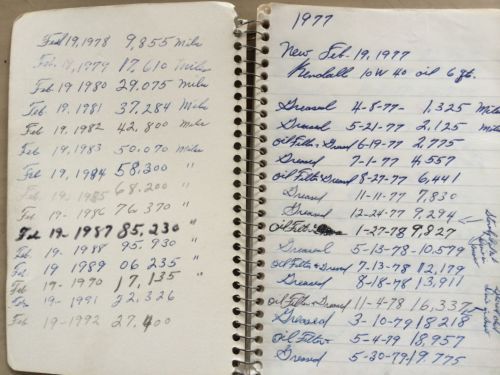 Feb 19, 1978 9,855 Miles
Feb. 19, 1979 17,610 Miles
Feb 19 1980 29.075 Miles
Feb. 19, 1981 37,284 Miles
Feb. 19, 1982 42,800 Miles
Feb. 19, 1983 50.070 Miles
Feb 19, 1984 58,200 "
Feb 19-1985 68,200 "
Feb 19- 1986 76,370 "
Feb 19- 1987 85,230 "
Feb 19- 1988 95,930 "
Feb 19 1989 06 235 "
Feb 19-1970 17,135 "
Feb 19-1991 22,326
Feb 19-1992 27,400
1977
New, Feb. 19, 1977
Kendall 10W 40 oil 6 qt.
Greased 4-8-77- 1,325 Miles
Greased 5-21-77 2,125 Miles
oil Filter & Greased 6-19-77 2,775
Greased 7-1-77 4,557
oil Filter & Greased 8-27-77 6,441
Greased 11-11-77 7,830
Greased 12-24-77 9,294
oil Filter 1-27-78 9,827
Greased 5-13-78-10,579
oil Filter & Greased 7-13-78 12,179
Greased 8-18-78 13,911
oil Filter & Greased 11-4-78 16,337
Greased 3-10-79 18218
oil Filter 5-4-79 18,957
Greased 5-30-79 19.775